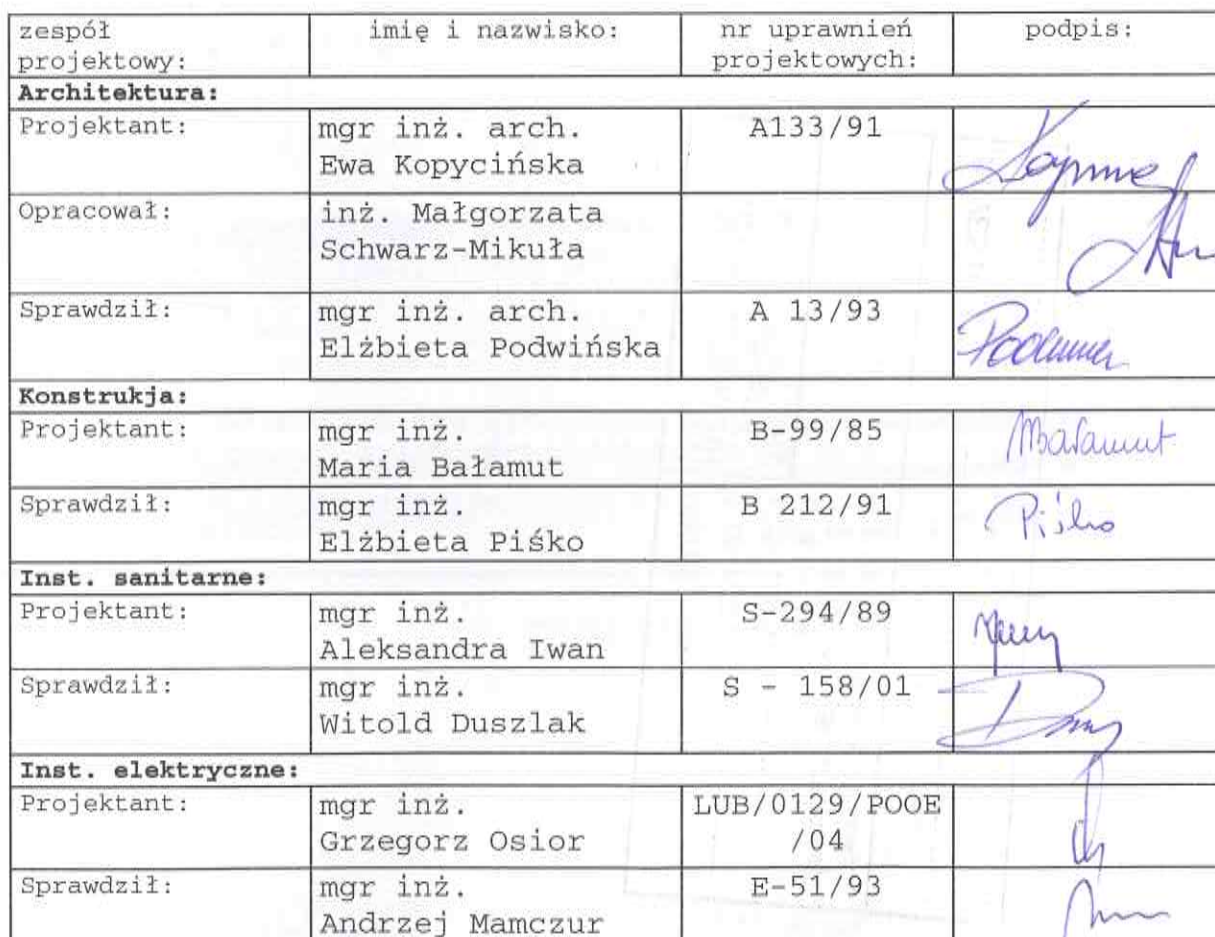 zespół projektowy: imię i nazwisko: nr uprawnień projektowych: podpis:
Architektura:
Projektant: mgr inż. arch. Ewa Kopycińska A133/91
Opracował: inż. Małgorzata Schwarz-Mikuła
Sprawdził: mgr inż. arch. Elżbieta Podwińska A 13/93
Konstrukja:
Projektant: mgr inż. Maria Bałamut B-99/85 MBałamut
Sprawdził: mgr inż. Elżbieta Piśko B 212/91 Piśko
Inst. sanitarne:
Projektant: mgr inż. Aleksandra Iwan S-294/89
Sprawdził: mgr inż. Witold Duszlak S - 158/01
Inst. elektryczne:
Projektant: mgr inż. Grzegorz Osior LUB/0129/POOE /04
Sprawdził: mgr inż. Andrzej Mamczur E-51/93